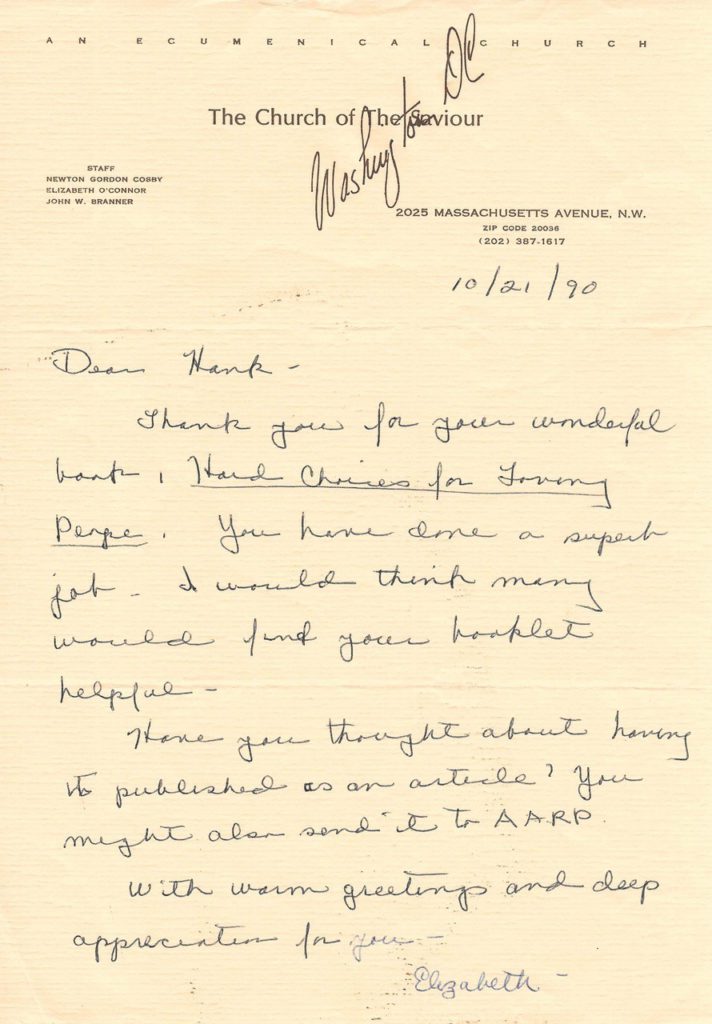 AN ECUMENICAL CHURCH
Washington DC
The Church of The Saviour
STAFF
NEWTON GORDON COSBY
ELIZABETH O'CONNOR
JOHN W. BRANNER
2025 MASSACHUSETTS AVENUE, N.W.
ZIP CODE 20036
(202) 387-1617
10/21/90
Dear Hank -
Thank you for your wonderful
book, Hard Choices for Loving
People. You have done a superb
job - I would think many
would find your booklet
helpful -
Have you thought about having
it published as an article? You
might also send it to AARP.
With warm greetings and deep
appreciation for you -
Elizabeth -